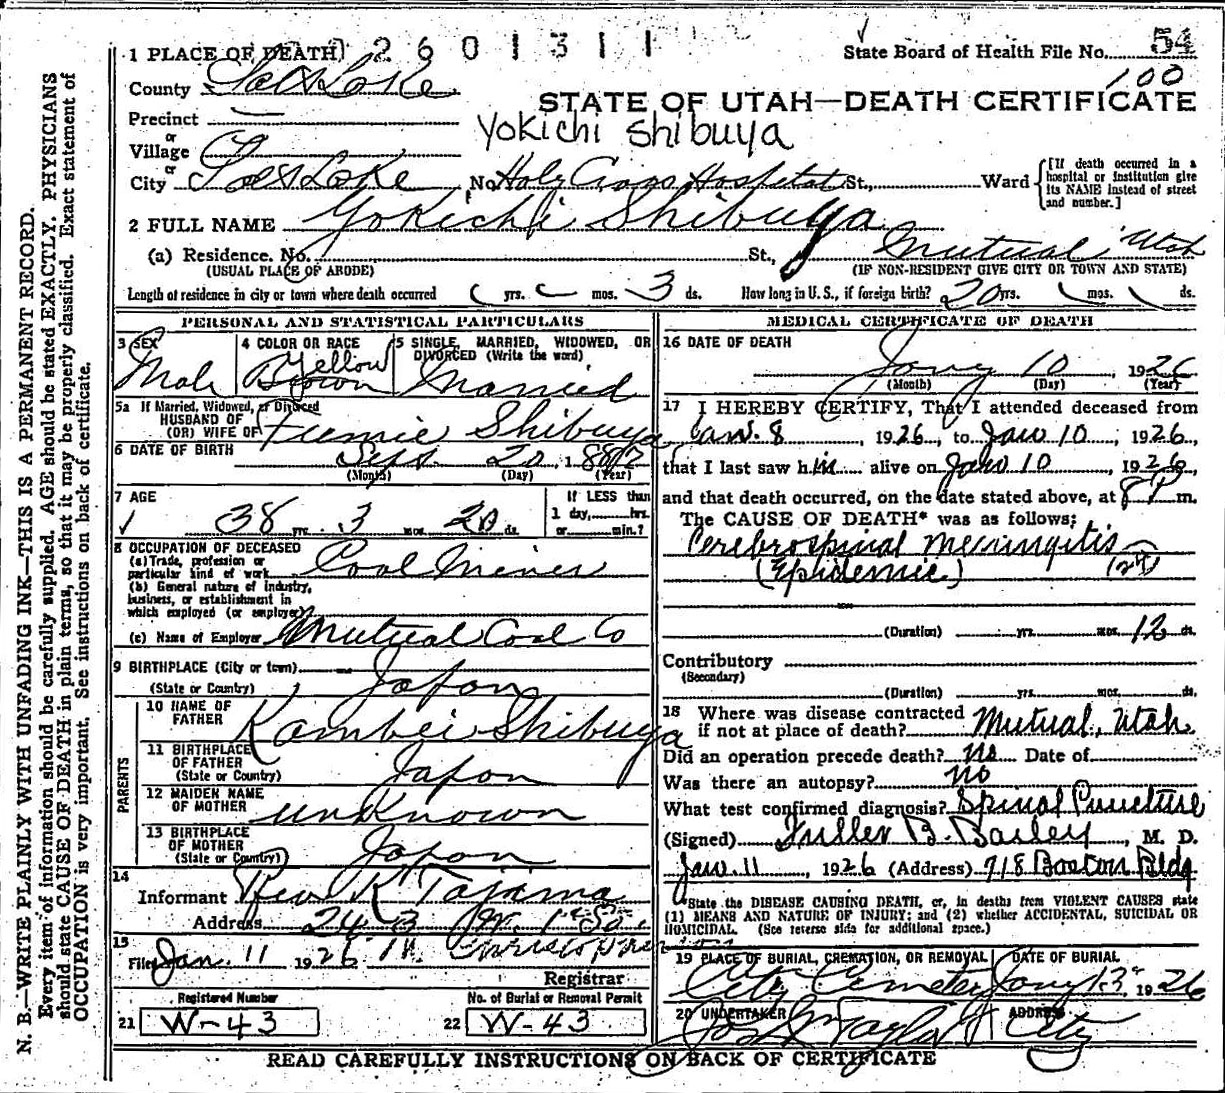 N. B.—WRITE PLAINLY WITH UNFADING INK—THIS IS A PERMANENT RECORD.
Every item of information should be carefully supplied. AGE should be stated EXACTLY. PHYSICIANS
should state CAUSE OF DEATH in plain terms, so that it may be properly classified. Exact statement of
OCCUPATION is very important. See instructions on back of certificate.
1 PLACE OF DEATH 2601311
State Board of Health File No. 54
100
County Salt Lake
STATE OF UTAH—DEATH CERTIFICATE
Precinct —
Yokichi Shibuya
or
Village
or
City Salt Lake No. Holy Cross Hospital St., Ward
[If death occurred in a hospital or institution give its NAME instead of street and number.]
2 FULL NAME Yokichi Shibuya
(a) Residence. No. St., Mutual Utah
(USUAL PLACE OF ABODE) (IF NON-RESIDENT GIVE CITY OR TOWN AND STATE)
Length of residence in city or town where death occurred yrs. mos. 3 ds. How long in U.S., if foreign birth? 20 yrs. mos. ds.
PERSONAL AND STATISTICAL PARTICULARS
3 SEX
Male
4 COLOR OR RACE
Yellow
Brown
5 SINGLE, MARRIED, WIDOWED, OR
DIVORCED (Write the word)
Married
5a If Married, Widowed, or Divorced
HUSBAND OF
(OR) WIFE OF Fumie Shibuya
6 DATE OF BIRTH Sept. 20, 1887
(Month) (Day) (Year)
7 AGE
38 yrs. 3 mos. 20 ds.
If LESS than
1 day, hrs.
or min.?
8 OCCUPATION OF DECEASED
(a) Trade, profession or
particular kind of work Coal Miner
(b) General nature of industry,
business, or establishment in
which employed (or employer)
(c) Name of Employer Mutual Coal Co
9 BIRTHPLACE (City or town)
(State or Country) Japan
PARENTS
10 NAME OF
FATHER Kambei Shibuya
11 BIRTHPLACE
OF FATHER
(State or Country) Japan
12 MAIDEN NAME
OF MOTHER unknown
13 BIRTHPLACE
OF MOTHER
(State or Country) Japan
14
Informant Rev K Tajama
Address 243 W. 1st So.
15
Filed Jan. 11 1926
Registrar
Registered Number No. of Burial or Removal Permit
21 W-43 22 W-43
MEDICAL CERTIFICATE OF DEATH
16 DATE OF DEATH
Jany 10, 1926
(Month) (Day) (Year)
17 I HEREBY CERTIFY, That I attended deceased from
Jan. 8, 1926, to Jan 10, 1926,
that I last saw him alive on Jan 10, 1926,
and that death occurred, on the date stated above, at 8 P m.
The CAUSE OF DEATH* was as follows:
Cerebrospinal Meningitis
(Epidemic) (24)
(Duration) yrs. mos. 12 ds.
Contributory
(Secondary)
(Duration) yrs. mos. ds.
18 Where was disease contracted
if not at place of death? Mutual, Utah
Did an operation precede death? no Date of
Was there an autopsy? no
What test confirmed diagnosis? Spinal Puncture
(Signed) Fuller B. Bailey, M. D.
Jan. 11, 1926 (Address) 718 Boston Bldg
*State the DISEASE CAUSING DEATH, or, in deaths from VIOLENT CAUSES state
(1) MEANS AND NATURE OF INJURY; and (2) whether ACCIDENTAL, SUICIDAL OR
HOMICIDAL. (See reverse side for additional space.)
19 PLACE OF BURIAL, CREMATION, OR REMOVAL DATE OF BURIAL
City Cemetery Jany 13 1926
20 UNDERTAKER ADDRESS
Jos Wm Taylor City
READ CAREFULLY INSTRUCTIONS ON BACK OF CERTIFICATE